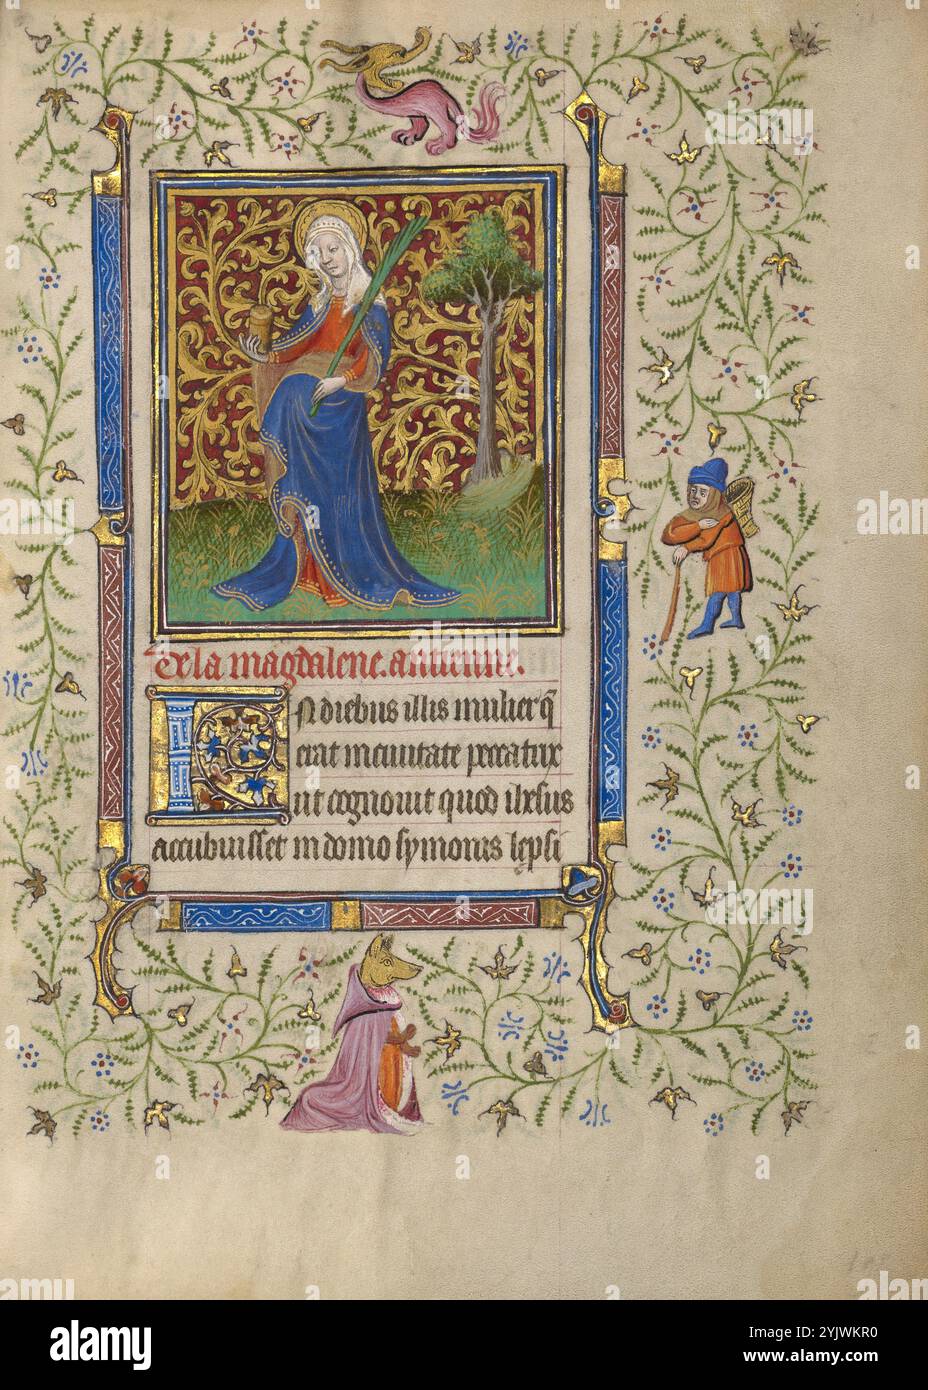 De la magdalene. antienne.
IN diebus illis mulier q̄
erat in ciuitate peccatrix
ut cognouit quod ihesus
accubuisset in domo symonis lepsi
alamy
Image ID: 2YJWKR0
www.alamy.com